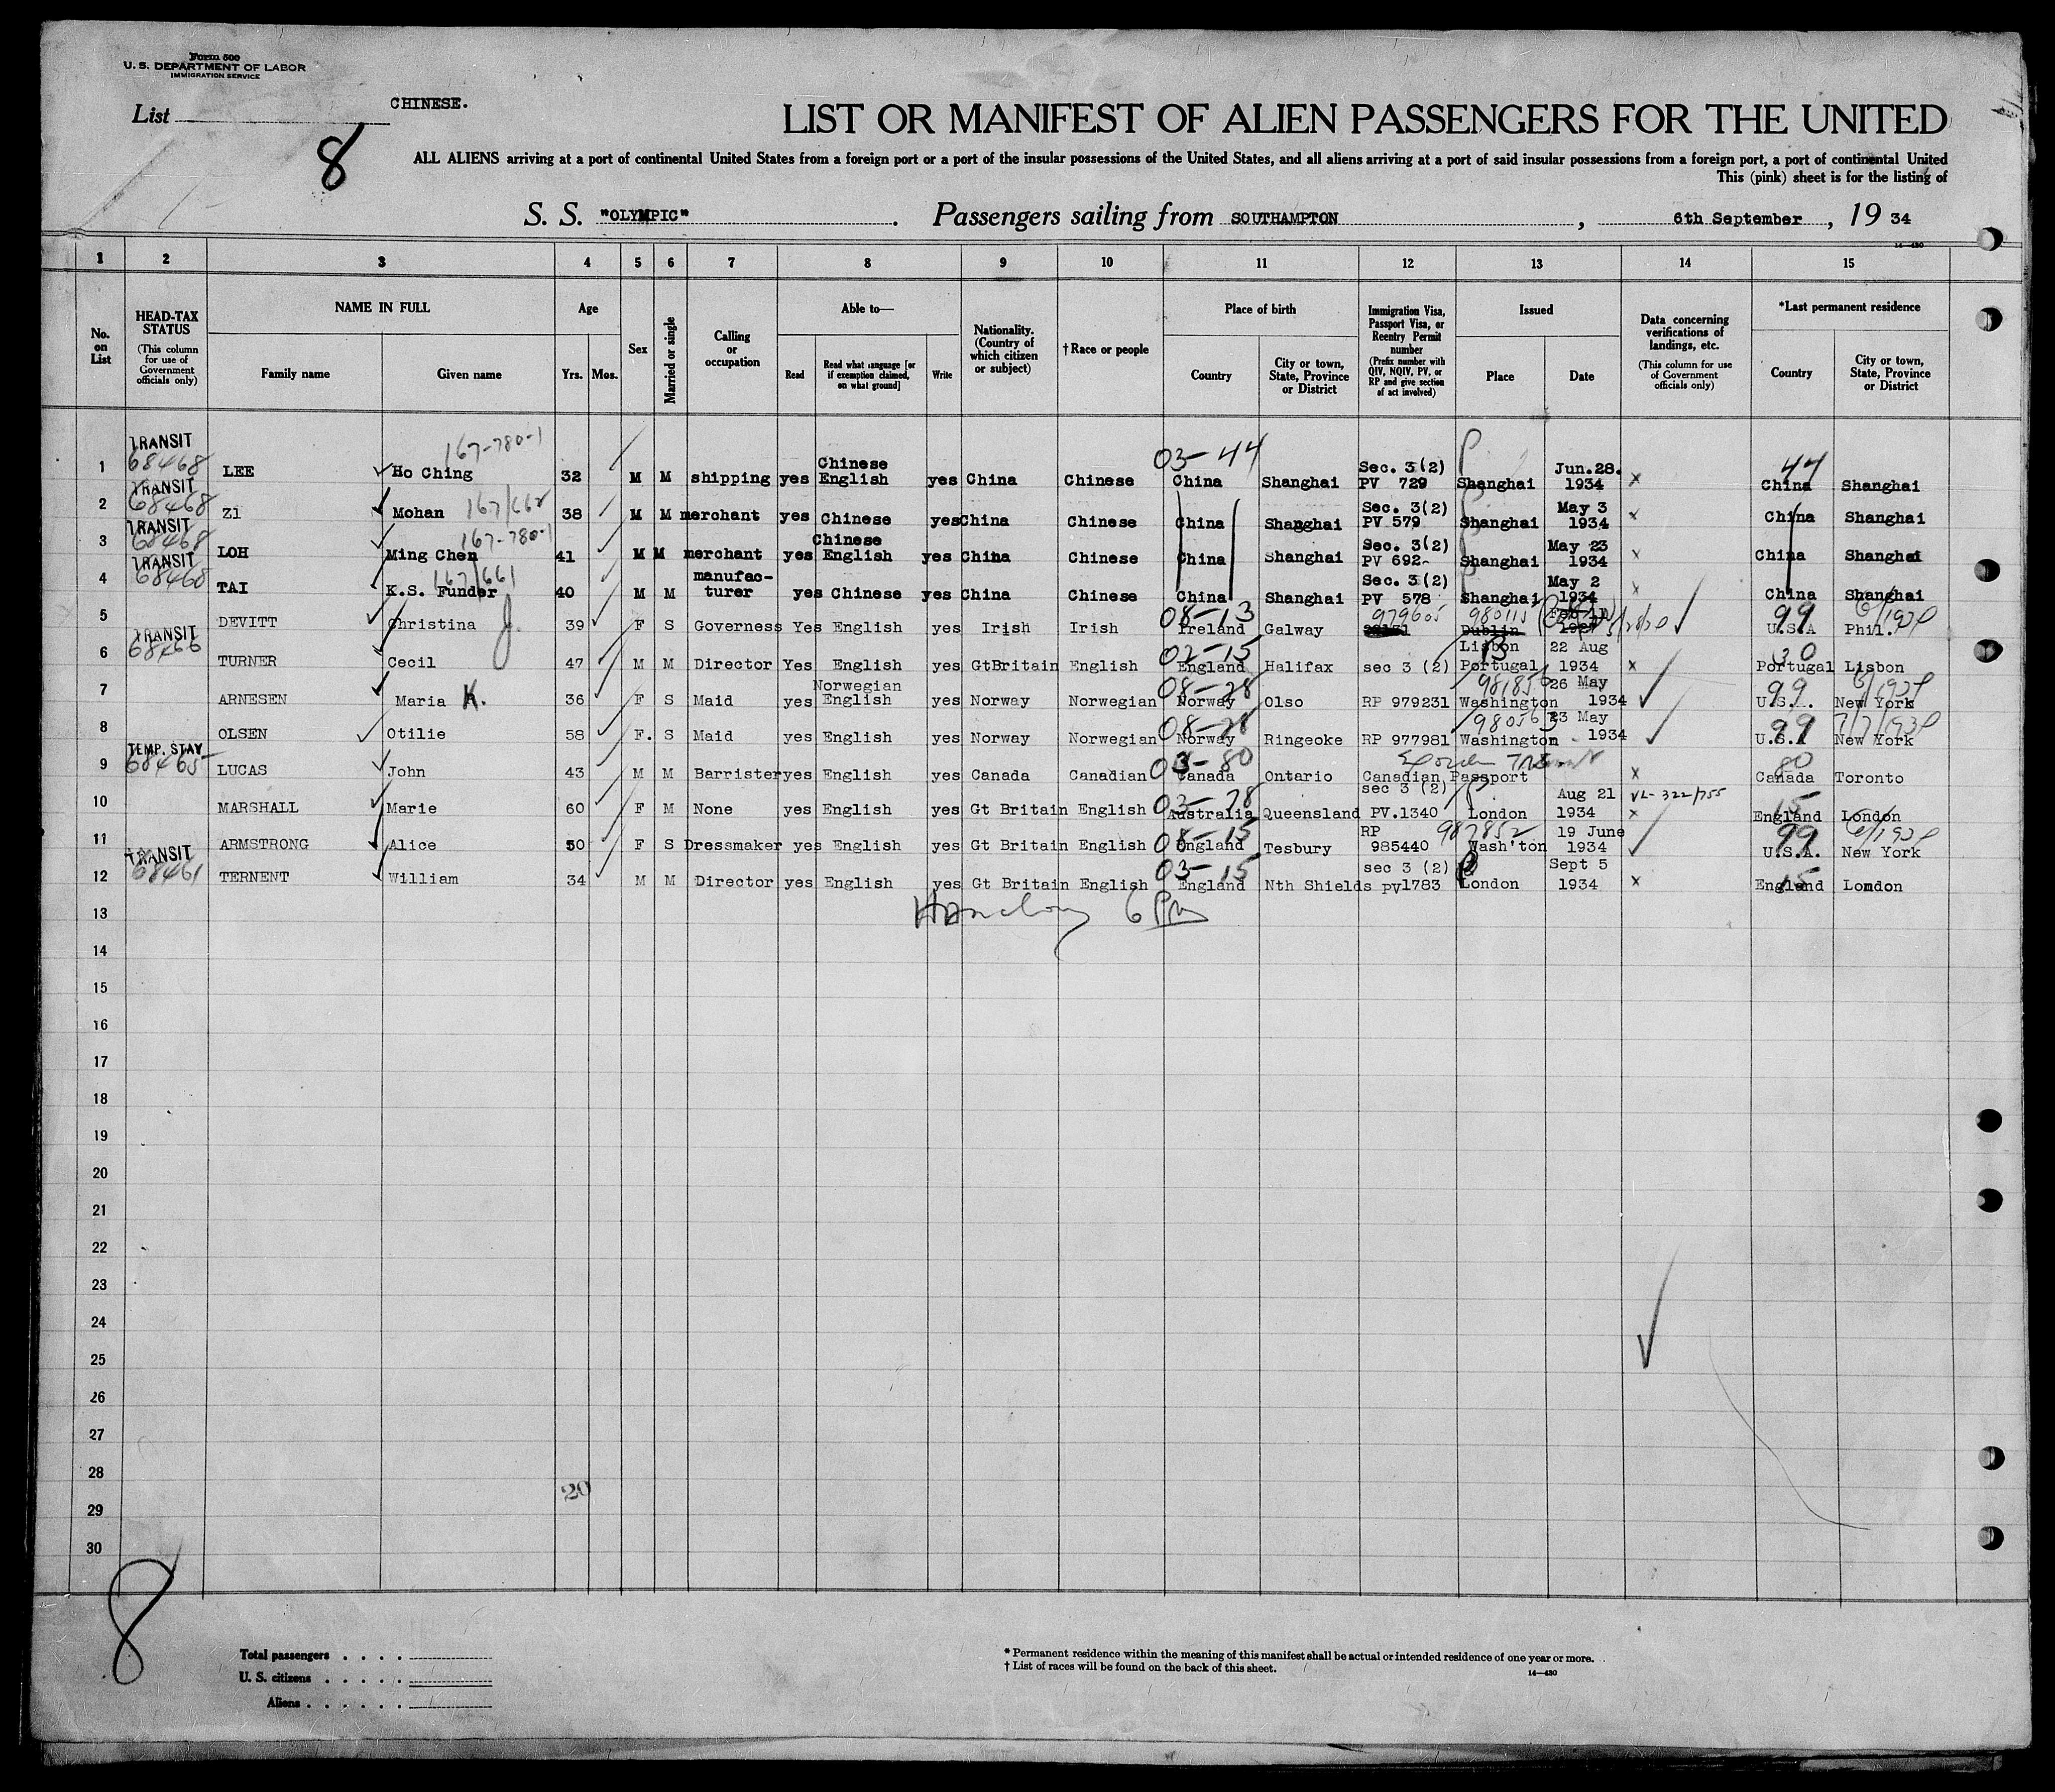 Form 500
U. S. DEPARTMENT OF LABOR
IMMIGRATION SERVICE
List CHINESE.
8
LIST OR MANIFEST OF ALIEN PASSENGERS FOR THE UNITED
ALL ALIENS arriving at a port of continental United States from a foreign port or a port of the insular possessions of the United States, and all aliens arriving at a port of said insular possessions from a foreign port, a port of continental United
This (pink) sheet is for the listing of
S. S. "OLYMPIC". Passengers sailing from SOUTHAMPTON, 6th September, 19 34
14—430
1 2 3 4 5 6 7 8 9 10 11 12 13 14 15
No. on List
HEAD-TAX STATUS (This column for use of Government officials only)
NAME IN FULL
Family name Given name
Age
Yrs. Mos.
Sex
Married or single
Calling or occupation
Able to—
Read Read what language [or if exemption claimed, on what ground] Write
Nationality. (Country of which citizen or subject)
† Race or people
Place of birth
Country City or town, State, Province or District
Immigration Visa, Passport Visa, or Reentry Permit number (Prefix number with QIV, NQIV, PV, or RP and give section of act involved)
Issued
Place Date
Data concerning verifications of landings, etc. (This column for use of Government officials only)
*Last permanent residence
Country City or town, State, Province or District
1 TRANSIT 68468 LEE Ho Ching 167-780-1 32 M M shipping yes Chinese English yes China Chinese 03-44 China Shanghai Sec. 3(2) PV 729 Shanghai Jun.28. 1934 x 44 China Shanghai
2 TRANSIT 68468 ZI Mohan 167/662 38 M M merchant yes Chinese yes China Chinese China Shanghai Sec. 3(2) PV 579 Shanghai May 3 1934 x China Shanghai
3 TRANSIT 68468 LOH Ming Chen 167-780-1 41 M M merchant yes Chinese English yes China Chinese China Shanghai Sec. 3(2) PV 692 Shanghai May 23 1934 x China Shanghai
4 TRANSIT 68468 TAI K.S. Funder 167/661 40 M M manufacturer yes Chinese yes China Chinese China Shanghai Sec. 3(2) PV 578 Shanghai May 2 1934 x China Shanghai
5 DEVITT Christina J. 39 F S Governess Yes English yes Irish Irish 08-13 Ireland Galway 979605 980115 Dublin 99 U.S.A Phil.
6 TRANSIT 68466 TURNER Cecil 47 M M Director Yes English yes GtBritain English 02-15 England Halifax sec 3 (2) Lisbon Portugal 22 Aug 1934 x 30 Portugal Lisbon
7 ARNESEN Maria K. 36 F S Maid yes Norwegian English yes Norway Norwegian 08-28 Norway Olso RP 979231 981856 Washington 26 May 1934 99 U.S.. New York
8 OLSEN Otilie 58 F. S Maid yes English yes Norway Norwegian 08-28 Norway Ringeoke RP 977981 980563 Washington 23 May 1934 99 U.S.A New York
9 TEMP. STAY 68465 LUCAS John 43 M M Barrister yes English yes Canada Canadian 03-80 Canada Ontario Canadian Passport x 80 Canada Toronto
10 MARSHALL Marie 60 F M None yes English yes Gt Britain English 03-78 Australia Queensland sec 3 (2) PV.1340 London Aug 21 1934 VL-322/755 x 15 England London
11 ARMSTRONG Alice 50 F S Dressmaker yes English yes Gt Britain English 08-15 England Tesbury RP 985440 987852 Wash'ton 19 June 1934 99 U.S.A. New York
12 TRANSIT 68461 TERNENT William 34 M M Director yes English yes Gt Britain English 03-15 England Nth Shields sec 3 (2) pv1783 London Sept 5 1934 x 15 England London
13 6 PM
14
15
16
17
18
19
20
21
22
23
24
25
26
27
28
20
29
30
8
Total passengers . . . .
U. S. citizens . . . . .
Aliens . . . . . .
* Permanent residence within the meaning of this manifest shall be actual or intended residence of one year or more.
† List of races will be found on the back of this sheet.
14—430